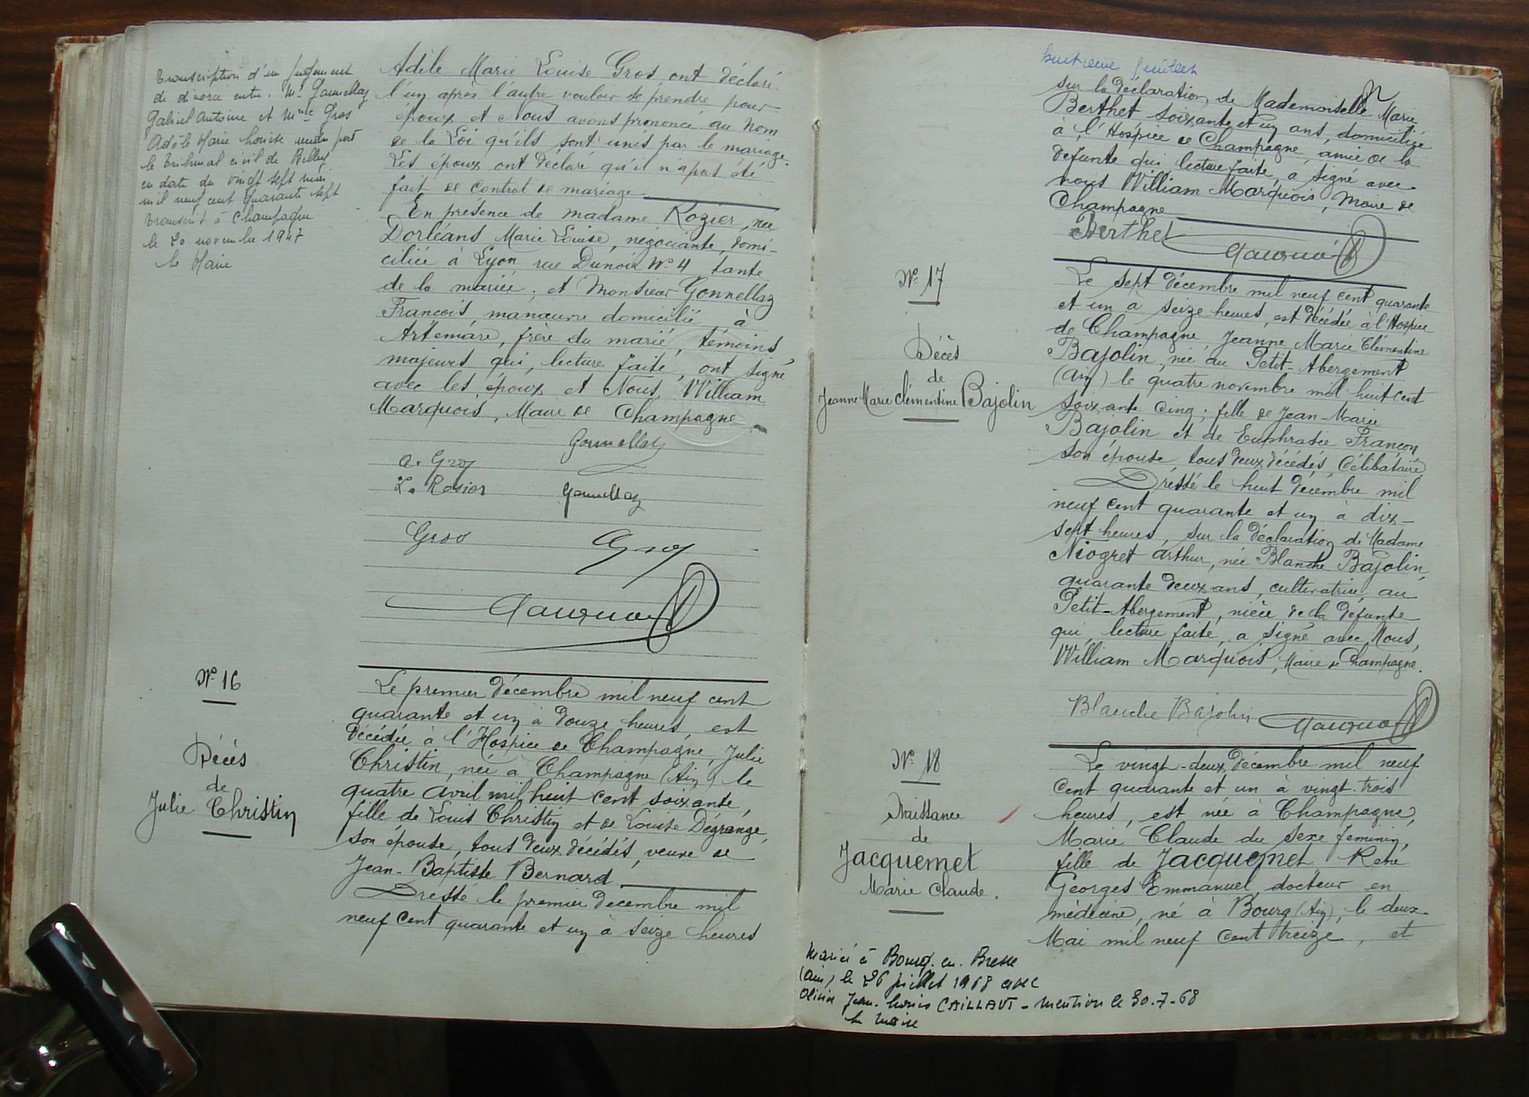 Transcription d'un jugement
de divorce entre Mr Gonnellaz
Gabriel Antoine et Mme Gros
Adèle Marie Louise rendu par
le Tribunal civil de Belley
en date du vingt sept mai
mil neuf cent quarante sept
Transcrit à Champagne
le 20 novembre 1947
le Maire
Adèle Marie Louise Gros ont déclaré
l'un après l'autre vouloir se prendre pour
époux et Nous avons prononcé au nom
de la Loi qu'ils sont unis par le mariage.
Les époux ont déclaré qu'il n'a pas été
fait de contrat de mariage
En présence de madame Rozier, née
Dorléans Marie Louise, négociante, domi-
ciliée à Lyon rue Dunoir No 4, tante
de la mariée; et Monsieur Gonnellaz
François manœuvre domicilié à
Artemare, frère du marié, témoins
majeurs qui, lecture faite, ont signé
avec les époux et Nous, William
Marquois, Maire de Champagne
Gonnellaz
a. Gros
L. Rosier
Gonnellaz
Gros
Gros
Marquois
No 16
Décès
de
Julie Christin
Le premier décembre mil neuf cent
quarante et un à douze heures, est
décédée à l'Hospice de Champagne, Julie
Christin, née à Champagne (Ain) le
quatre avril mil huit cent soixante,
fille de Louis Christin et de Louise Dégrange,
son épouse, tous deux décédés, veuve de
Jean-Baptiste Bernard
Dressé le premier décembre mil
neuf cent quarante et un à seize heures
huitième feuillet
sur la déclaration de Mademoiselle Marie
Berthet soixante et un ans, domiciliée
à l'Hospice de Champagne, amie de la
défunte qui lecture faite, a signé avec
nous William Marquois, Maire de
Champagne
Berthet
Marquois
No 17
Décès
de
Jeanne Marie Clémentine Bajolin
Le sept décembre mil neuf cent quarante
et un à seize heures, est décédée à l'Hospice
de Champagne, Jeanne Marie Clémentine
Bajolin, née au Petit-Abergement
(Ain) le quatre novembre mil huit cent
soixante cinq; fille de Jean-Marie
Bajolin et de Euphrasie Françon
son épouse tous deux décédés, Célibataire
Dressé le huit décembre mil
neuf cent quarante et un à dix-
sept heures, sur la déclaration de Madame
Niogret Arthur, née Blanche Bajolin,
quarante deux ans, cultivatrice au
Petit-Abergement, nièce de la défunte
qui, lecture faite, a signé avec Nous,
William Marquois, Maire de Champagne.
Blanche Bajolin
Marquois
No 18
Naissance
de
Jacquemet
Marie Claude.
Le vingt-deux décembre mil neuf
cent quarante et un à vingt-trois
heures, est née à Champagne,
Marie Claude du sexe féminin,
fille de Jacquemet René
Georges Emmanuel docteur en
médecine, né à Bourg (Ain), le deux
Mai mil neuf cent treize, et
Mariée à Bourg-en-Bresse
(Ain) le 26 juillet 1968 avec
Olivier Jean-Louis CAILLAUT - mention le 30-7-68
Le Maire